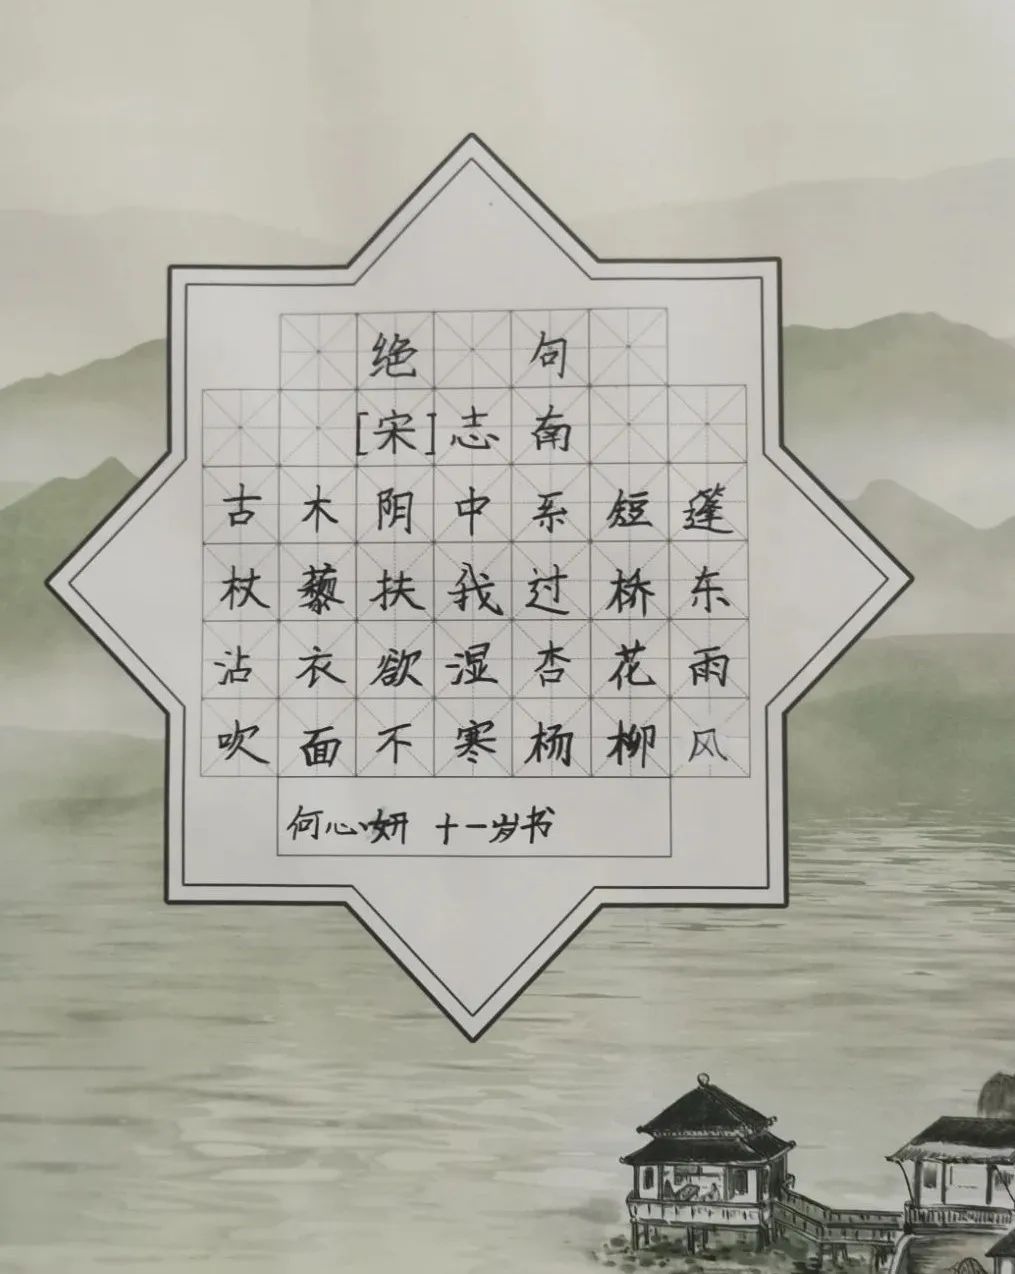 绝句
[宋]志南
古木阴中系短篷
杖藜扶我过桥东
沾衣欲湿杏花雨
吹面不寒杨柳风
何心妍 十一岁书